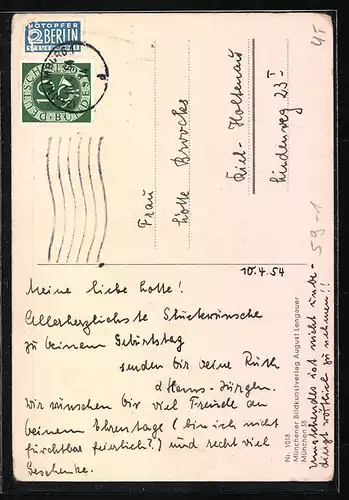 NOTOPFER
2 BERLIN
STEUERMARKE
DEUTSCHE BUNDESPOST
Frau
Lotte Brooks
Kiel-Holtenau
Lindenweg 23 I
10.4.54
Meine liebe Lotte!
Allerherzlichste Glückwünsche
zu Deinem Geburtstag
senden Dir Deine Ruth
& Hans-Jürgen.
Wir wünschen Dir viel Freude an
Deinem Ehrentage (bin ich nicht
furchtbar feierlich?) und recht viel
Geschenke.
Nr. 1013
Münchener Bildkunstverlag August Lengauer
München 38
Umstehendes ist nicht unbe-
dingt wörtlich zu nehmen!!
59-1